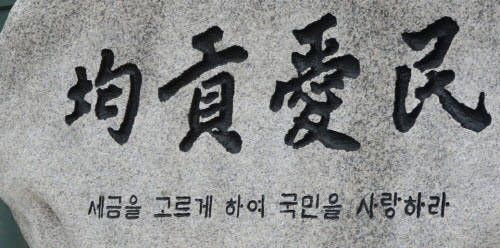 均貢愛民
세금을 고르게 하여 국민을 사랑하라